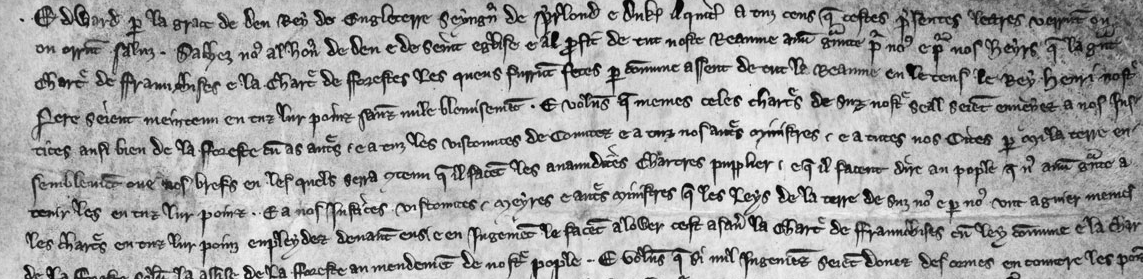 Edward p la grace de deu Rey de Engleterre Seyngn᷑ de Yrlond e Duk Daquit᷑ a tuz ceus q̄ cestes p̄sentes letres verrūt ou
ou orrūt saluz. Sachez n̄o al hon᷑ de deu e de seint᷑ eglise e al ꝓfit de tut nostre Reaume auū gn̄te p̄ no᷑ e p̄ nos heyrs q̄ la g̃nt
chart᷑ de ffraunchises e la chart᷑ de fforestes les queus furrūt fetes ꝑ cōmune assent de tut le Reaume en le tens le Rey henri nost᷑
Pere seient meintenu en tuz lur poinz sanz nule blemisemēt. E volūs q̄ memes celes chart᷑s de suz nost᷑ seal seiēt enueiez a nos Jus
tices ausi bien de la fforeste cū as aut᷑s e a tuz les viscountes de Countez e a tuz nos aut᷑s ministres e a tutes nos Citees ꝑ mi la terre en
semblemēt oue nos brefs en les quels serra 9tenu q̄ il facēt les auaundites chartres pupplier e q̄ il facent dire au pople q̄ n᷑ auū g̃ntē a
tenir les en tuz lur poinz. E a nos Justices viscountes meyres e aut᷑s ministres q̄ les Leys de la terre de suz n᷑ e ꝑ n᷑ unt a guier memes
les chart᷑s en tuz lur poinz en pleydez deuant eus e en Jugemēt le facēt alower cest asau᷑ la chart᷑ de ffraunchises cū ley cōmune e la char
de la fforeste solūc la assise de la fforeste au mendement de nost᷑ pople. E volūs q̄ si nul Jugemēt seiēt donez desormes en contrere les poi